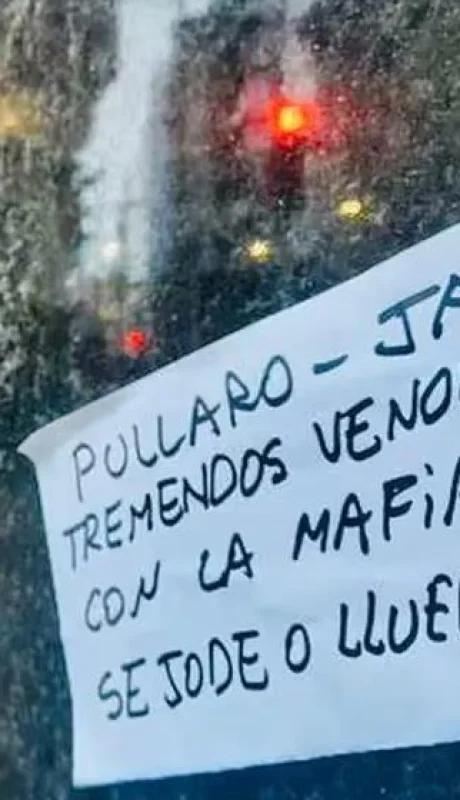 PULLARO - JA
TREMENDOS VENO
CON LA MAFIA
SE JODE O LLUE